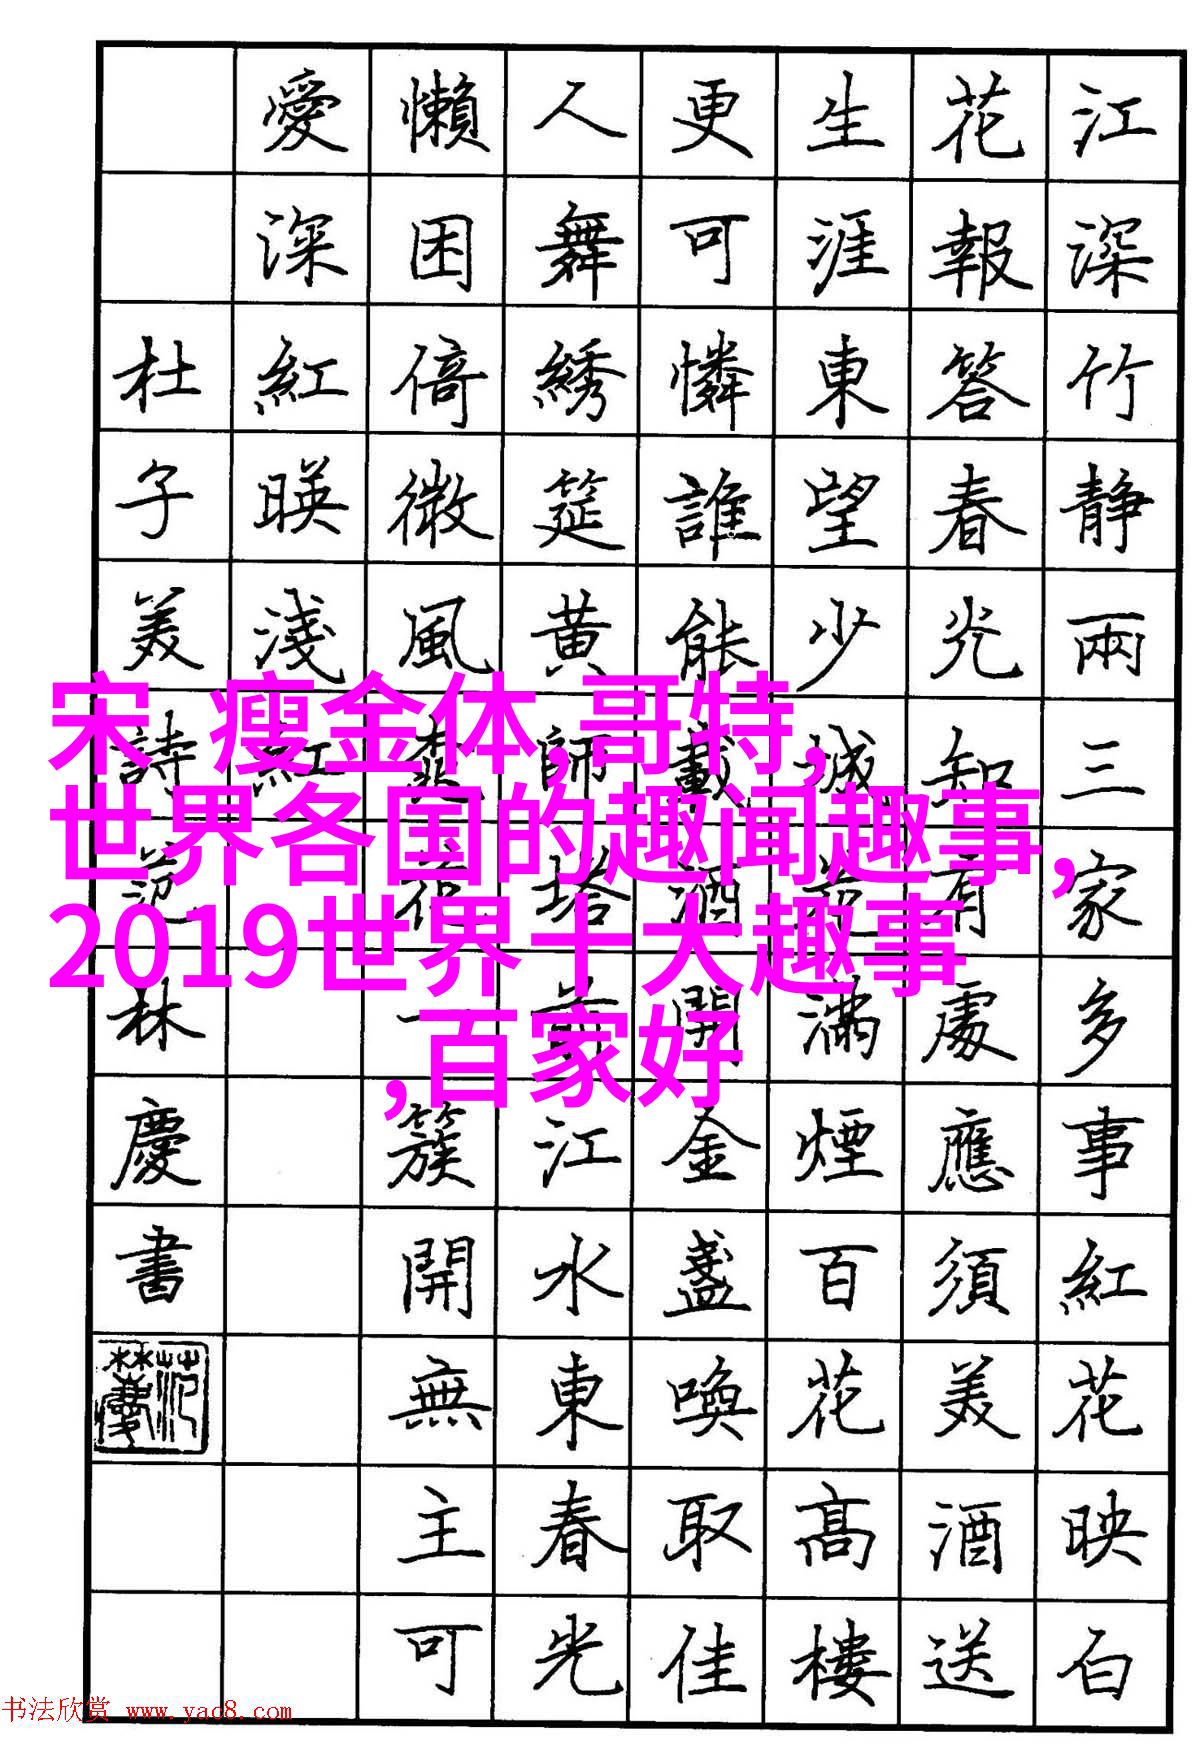 江深竹静兩三家多事紅花映白
花報答春光知有處應須美酒送
生涯東望少城花滿煙百花高樓
更可憐誰能載酒開金盞喚取佳
人舞綉筵黄師塔前江水東春光
懶困倚微風桃花一簇開無主可
愛深紅暎淺紅
杜子美詩范林慶書
宋 瘦金体,哥特,
世界各国的趣闻趣事,
2019世界十大趣事
,百家好
书法欣赏 www.yac8.com